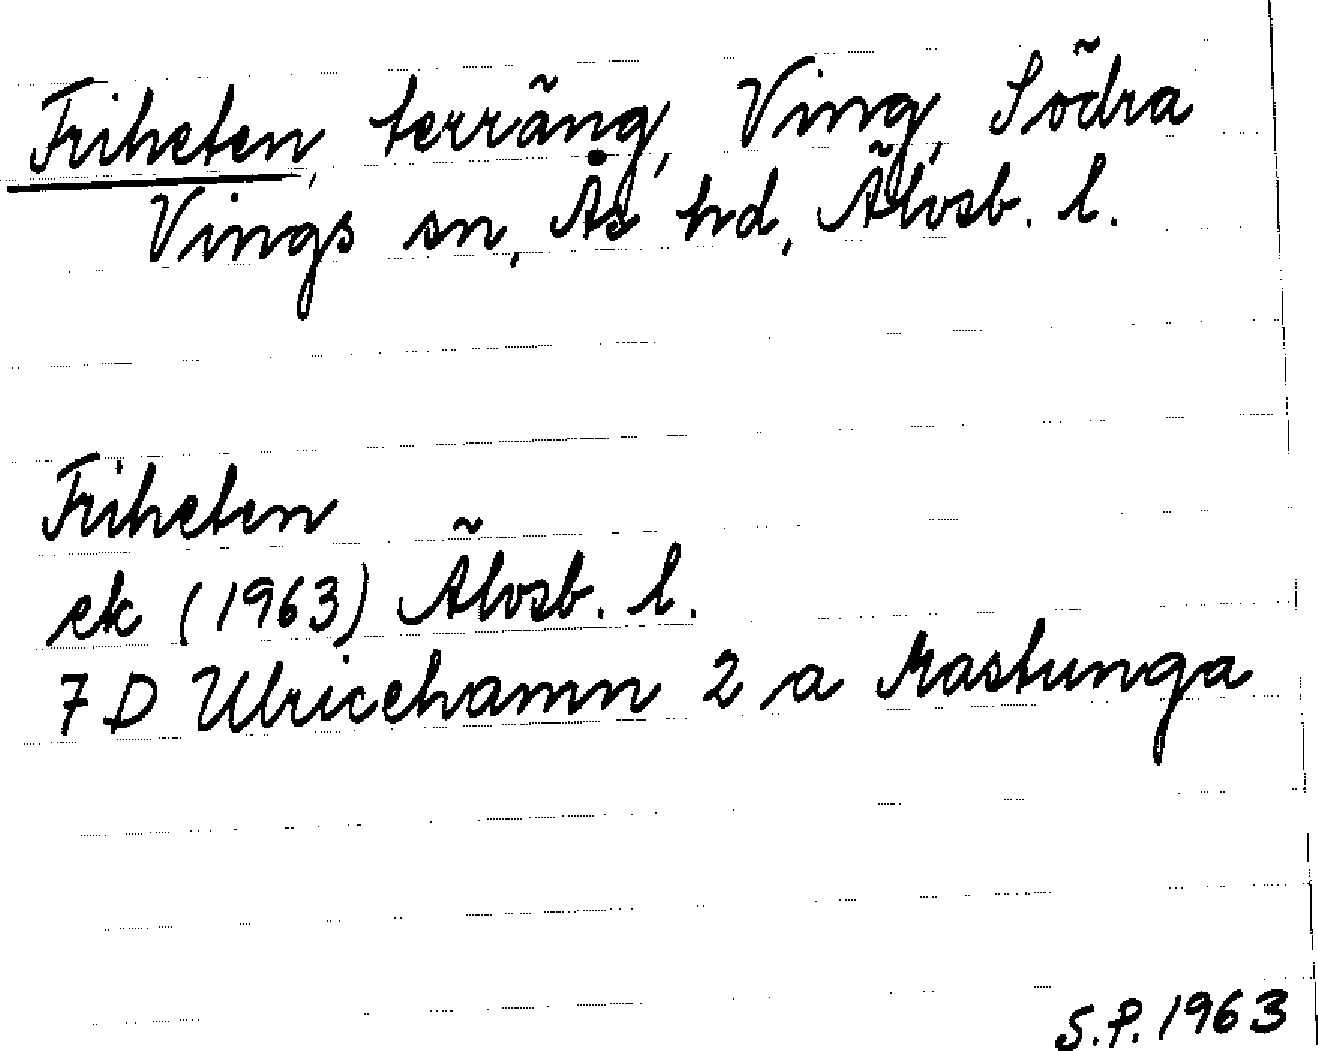 Friheten, terräng, Ving, Södra
Vings sn, Ås hd, Älvsb. l.
Friheten
ek (1963) Älvsb. l.
7 D Ulricehamn 2 a Rastunga
S.P. 1963